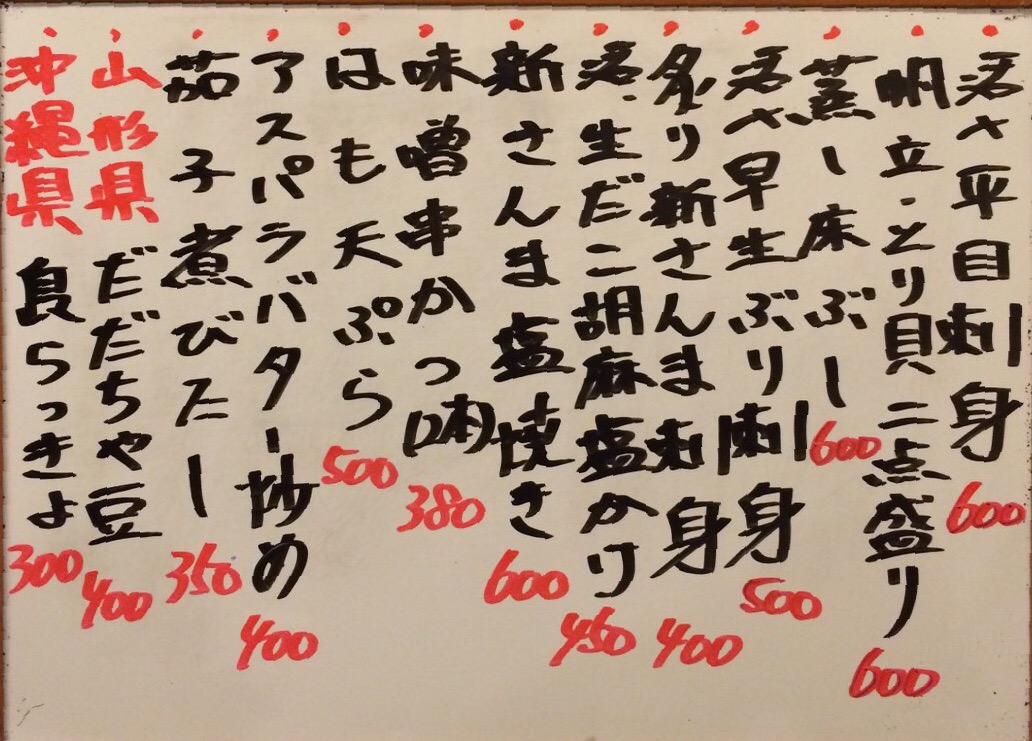 ・活〆平目刺身 600
・帆立・とり貝二点盛り 600
・蒸し床ぶし 600
・活〆早生ぶり刺身 500
・炙り新さんま刺身 400
・活・生だこ胡麻塩かけ 450
・新さんま塩焼き 600
・味噌串かつ(2本) 380
・はも天ぷら 500
・アスパラバター炒め 400
・茄子煮びたし 350
・山形県 だだちゃ豆 400
・沖縄県 島らっきょ 300